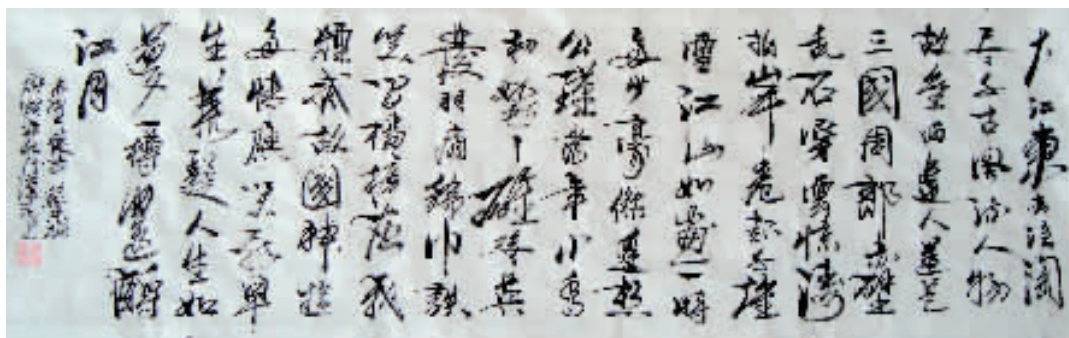 大江東去浪淘
尽千古風流人物
故壘西邊人道是
三國周郎赤壁
乱石穿雲惊濤
拍岸卷起千堆
雪江山如畫一時
多少豪傑遥想
公瑾當年小喬
初嫁了雄姿英
發羽扇綸巾談
笑间檣櫓灰飛
煙滅故國神遊
多情應笑我早
生華髮人生如
夢一樽還酹
江月